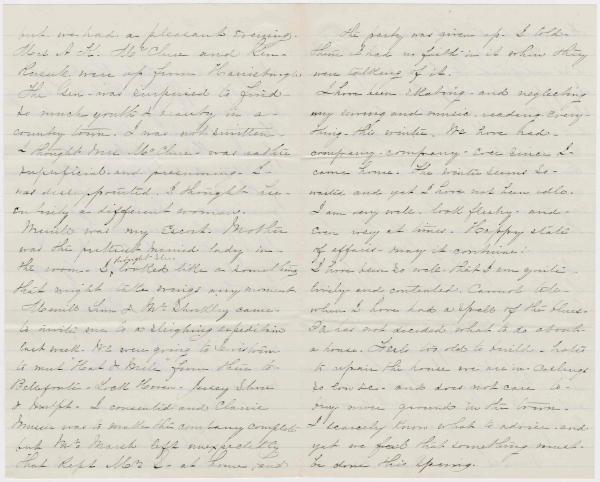 but we had a pleasant evening.
Mrs A. K. McClure and Gen-
were up from Harrisburg.
The Gen- was surprised to find
so much youth & beauty in a
country town. I was not smitten.
I thought Mrs McClure was rather
superficial and presuming. I
was disappointed. I thought her
entirely a different woman.
was my escort. Mother
was the prettiest married lady in
the room. I, looked like a something
that might take wings any moment
Linn & Mr Shortlidge came
to invite me to a sleighing expedition
last week. We were going to Lewistown
to meet from there to
Bellefonte - Lock Haven - Jersey Shore
& I consented and Clarie
was to make the company complete
but Mrs Marsh left unexpectedly
that kept Mr S. at home, and
The party was given up. I told
them I had no faith in it when they
were talking of it.
I have been skating - and neglecting
my sewing and music - reading every-
thing - this winter. We have had -
company - company - ever since I
came home. The winter seems so
and yet I have not been idle.
I am very well. look fleshy - and -
even at times. Happy state
of affairs - may it continue!
I have been so well that I am quite
lively and contented. Cannot tell
when I have had a spell of the blues.
Pa has not decided what to do about
a house. Feels too old to build - hates
to repair the house we are in - ceilings
so low &c. and does not care to
buy more ground in the town.
I scarcely know what to advise - and
yet we feel that something must
be done this Spring.